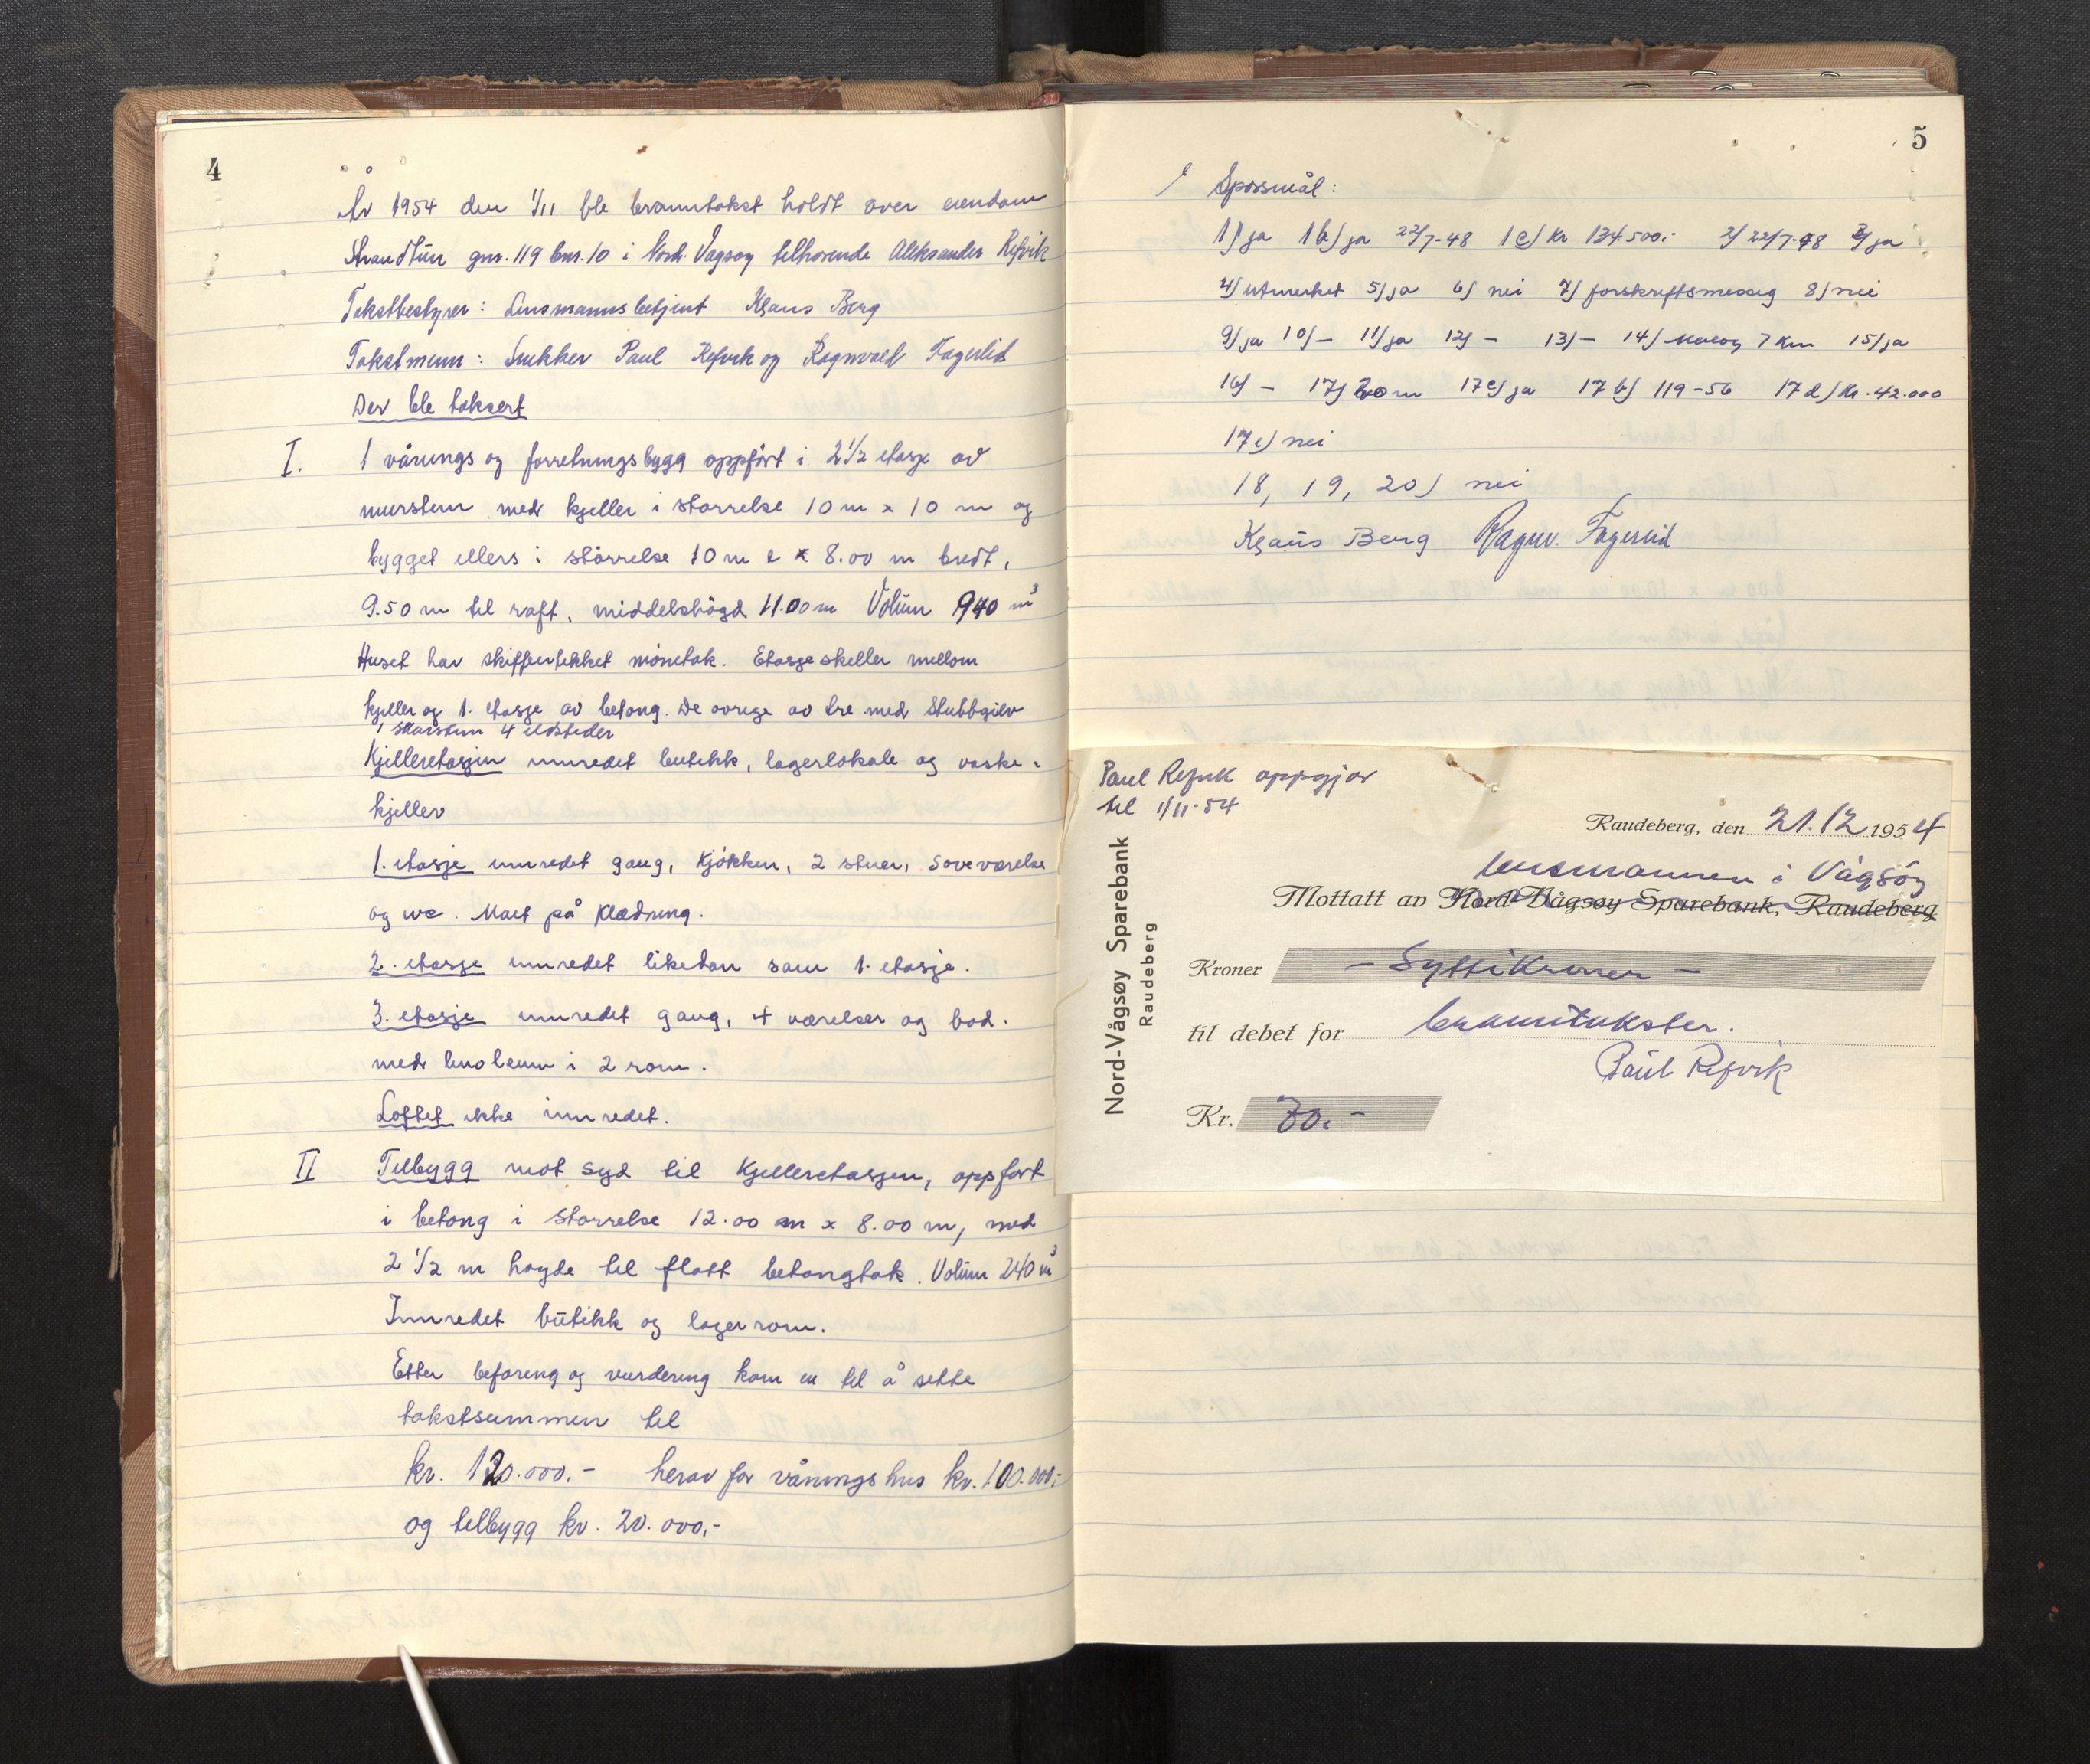 4
År 1954 den 1/11 ble branntakst holdt over eiendom
Strandtun gnr. 119 bnr. 10 i Nord-Vågsøy tilhørende Aleksander Refvik
Takstbestyrer: Lensmannsbetjent Klaus Berg
Takstmenn: Snekker Paul Refvik og Ragnvald Fagerlid
Der ble taksert
I. 1 vånings og forretningsbygg oppført i 2 1/2 etasje av
murstein med kjeller i størrelse 10 m x 10 m og
bygget ellers i størrelse 10 m x 8.00 m bredt,
9.50 m til raft, middelshögd 11.00 m Volum 940 m3
Huset har skiffertekket mønetak. Etasjeskiller mellom
kjeller og 1. etasje av betong. De øvrige av tre med stubbgulv
1 skorstein 4 ildsteder
Kjelleretasjen innredet butikk, lagerlokale og vaske-
kjeller
1. etasje innredet gang, kjøkken, 2 stuer, soveværelse
og wc. Malt på kledning.
2. etasje innredet likedan som 1. etasje.
3. etasje innredet gang, 4 værelser og bod.
med linoleum i 2 rom.
Loftet ikke innredet.
II Tilbygg mot syd til kjelleretasjen, oppført
i betong i størrelse 12.00 m x 8.00 m, med
2 1/2 m høyde til flatt betongtak. Volum 240 m3
Innredet butikk og lagerrom.
Etter befaring og vurdering kom en til å sette
takstsummen til
kr. 120.000.- herav for våningshus kr. 100.000.-
og tilbygg kr. 20.000,-
5
Spørsmål:
1) ja 1b) ja 22/7-48 1c) kr 134.500.- 2) 22/7-48 3) ja
4) utmerket 5) ja 6) nei 7) forskriftsmessig 8) nei
9) ja 10) - 11) ja 12) - 13) - 14) Måløy 7 km 15) ja
16) - 17) 20 m 17c) ja 17b) 119-56 17d) kr. 42.000
17e) nei
18, 19, 20) nei
Klaus Berg Ragnv. Fagerlid
Paul Refvik oppgjør
til 1/11-54
Nord-Vågsøy Sparebank
Raudeberg
Raudeberg, den 21.12 1954
lensmannen i Vågsöy
Mottatt av Nord-Vågsøy Sparebank, Raudeberg
Kroner - Syttikroner -
til debet for branntakster.
Paul Refvik
Kr. 70.-